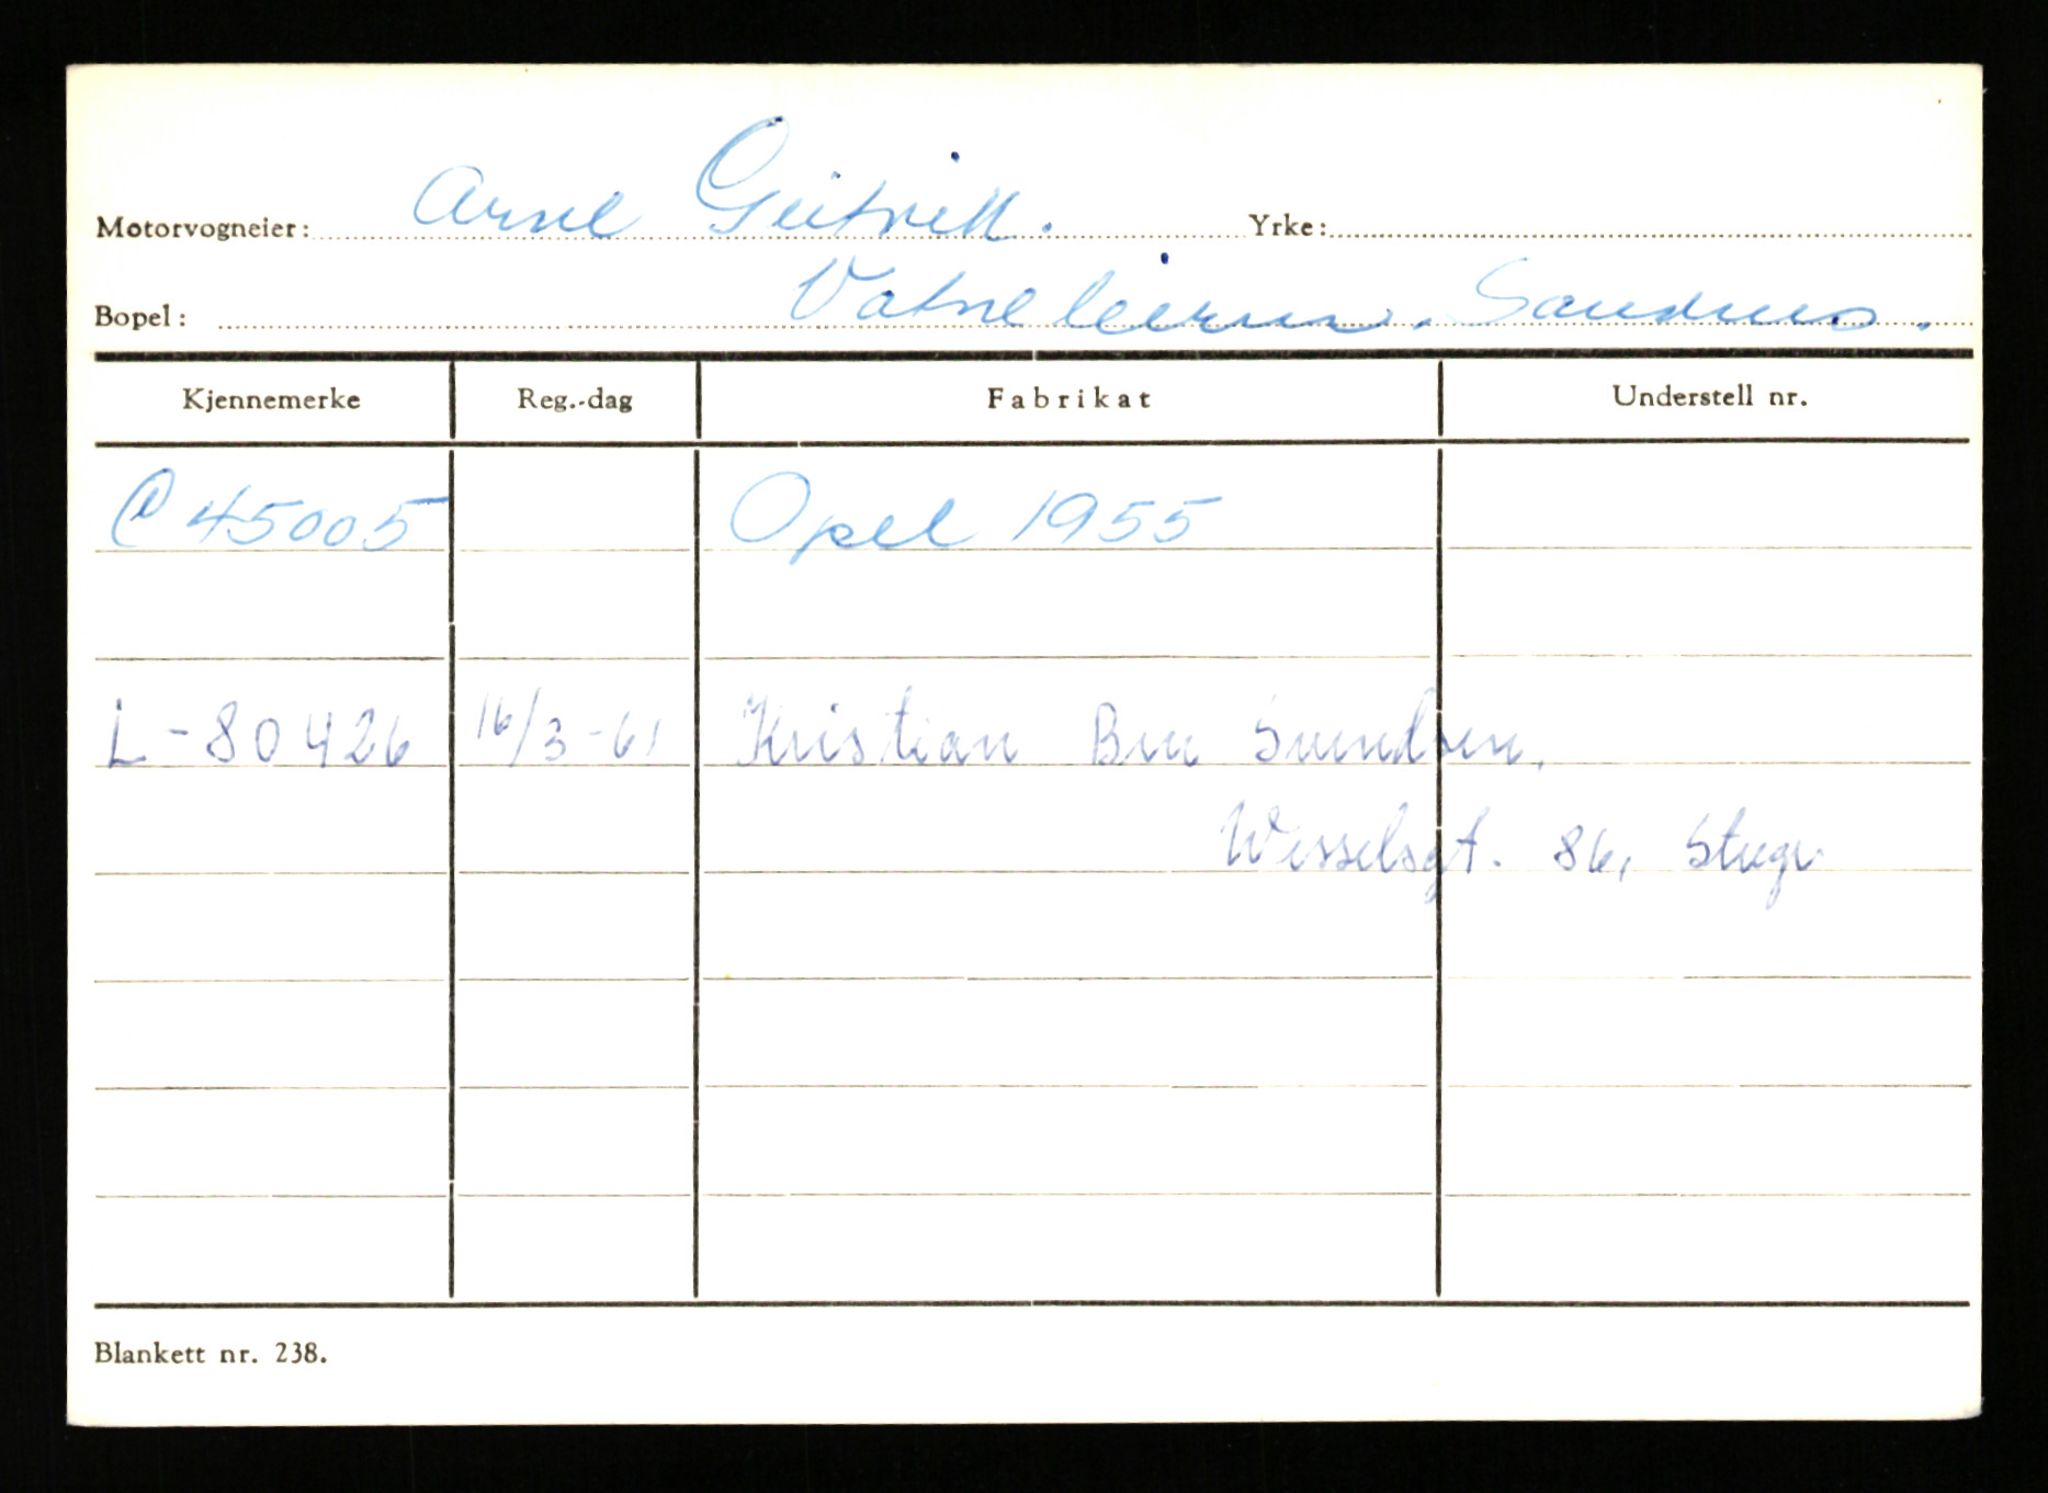 Motorvogneier: Arne Geitvik. Yrke:
Bopel: Vatneleieren. Sandnes.
Kjennemerke Reg.-dag Fabrikat Understell nr.
C 45005 Opel 1955
L-80426 16/3-61 Kristian Bru Svendsen,
Wesselsgt. 86, Stvgr
Blankett nr. 238.